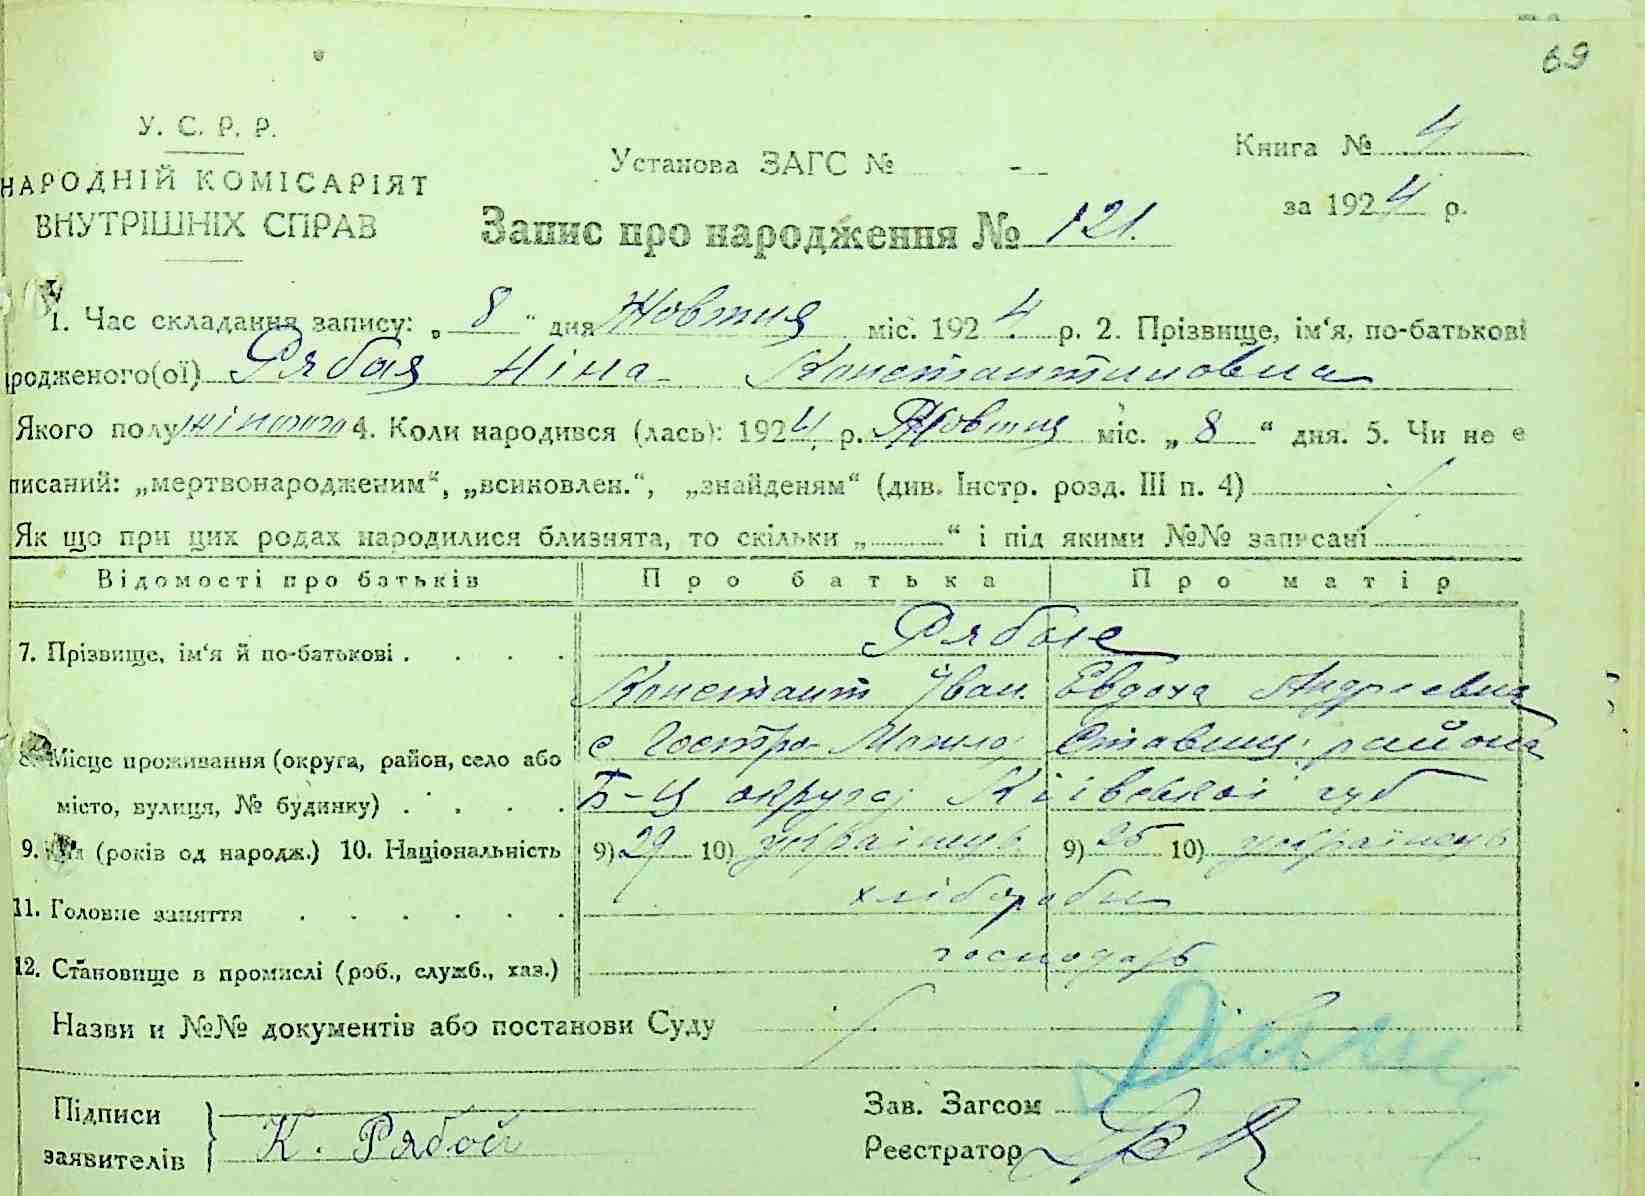 69
У. С. Р. Р.
НАРОДНІЙ КОМІСАРІЯТ
ВНУТРІШНІХ СПРАВ
Установа ЗАГС № -
Книга № 4
за 1924 р.
Запис про народження № 121.
1. Час складання запису: „ 8 “ дня Жовтня міс. 1924 р. 2. Прізвище, ім‘я, по-батькові
родженого(ої) Рябая Ніна Константиновна
Якого полу жіночо 4. Коли народився (лась): 1924 р. Жовтня міс. „ 8 “ дня. 5. Чи не є
писаний: „мертвонародженим“, „всиновлен.“, „знайденям“ (див. Інстр. розд. III п. 4)
Як що при цих родах народилися близнята, то скільки „ “ і під якими №№ записані
Відомості про батьків Про батька Про матір
7. Прізвище, ім‘я й по-батькові . . . . Рябые
Константи Іван. Евдоха Андреевна
с Гостро-Могила Ставищ. района
8. Місце проживання (округа, район, село або
місто, вулиця, № будинку) . . . . Б-Ц округи Київської губ
9. (років од народж.) 10. Національність 9) 29 10) українець 9) 25 10) українець
11. Головне заняття . . . . . . хлібороби
12. Становище в промислі (роб., служб., хаз.) господарь
Назви и №№ документів або постанови Суду
Підписи
заявителів
К. Рябой
Зав. Загсом
Реєстратор